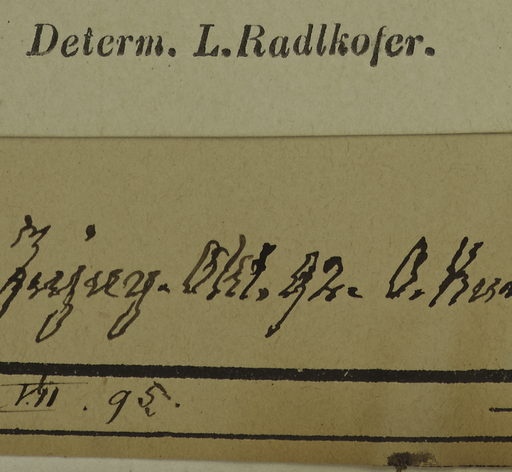 Determ. L. Radlkofer.
Okt. 92. O. Kun
VII. 95.